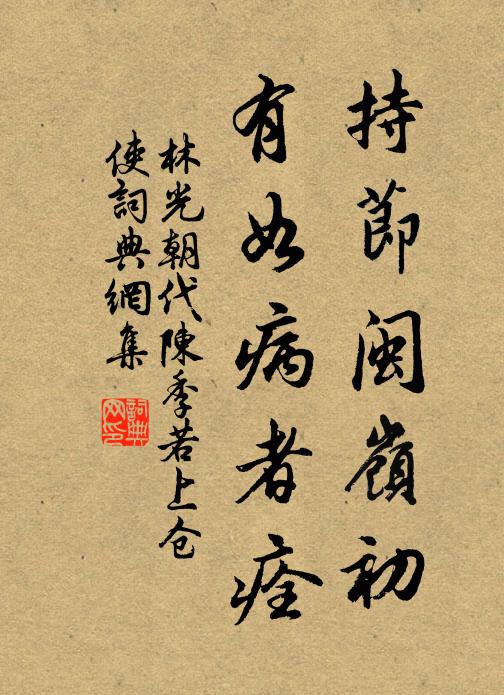 持節閩嶺初
有如病者痊
林光朝代陳季若上仓
使詞典網集
詞典
网印